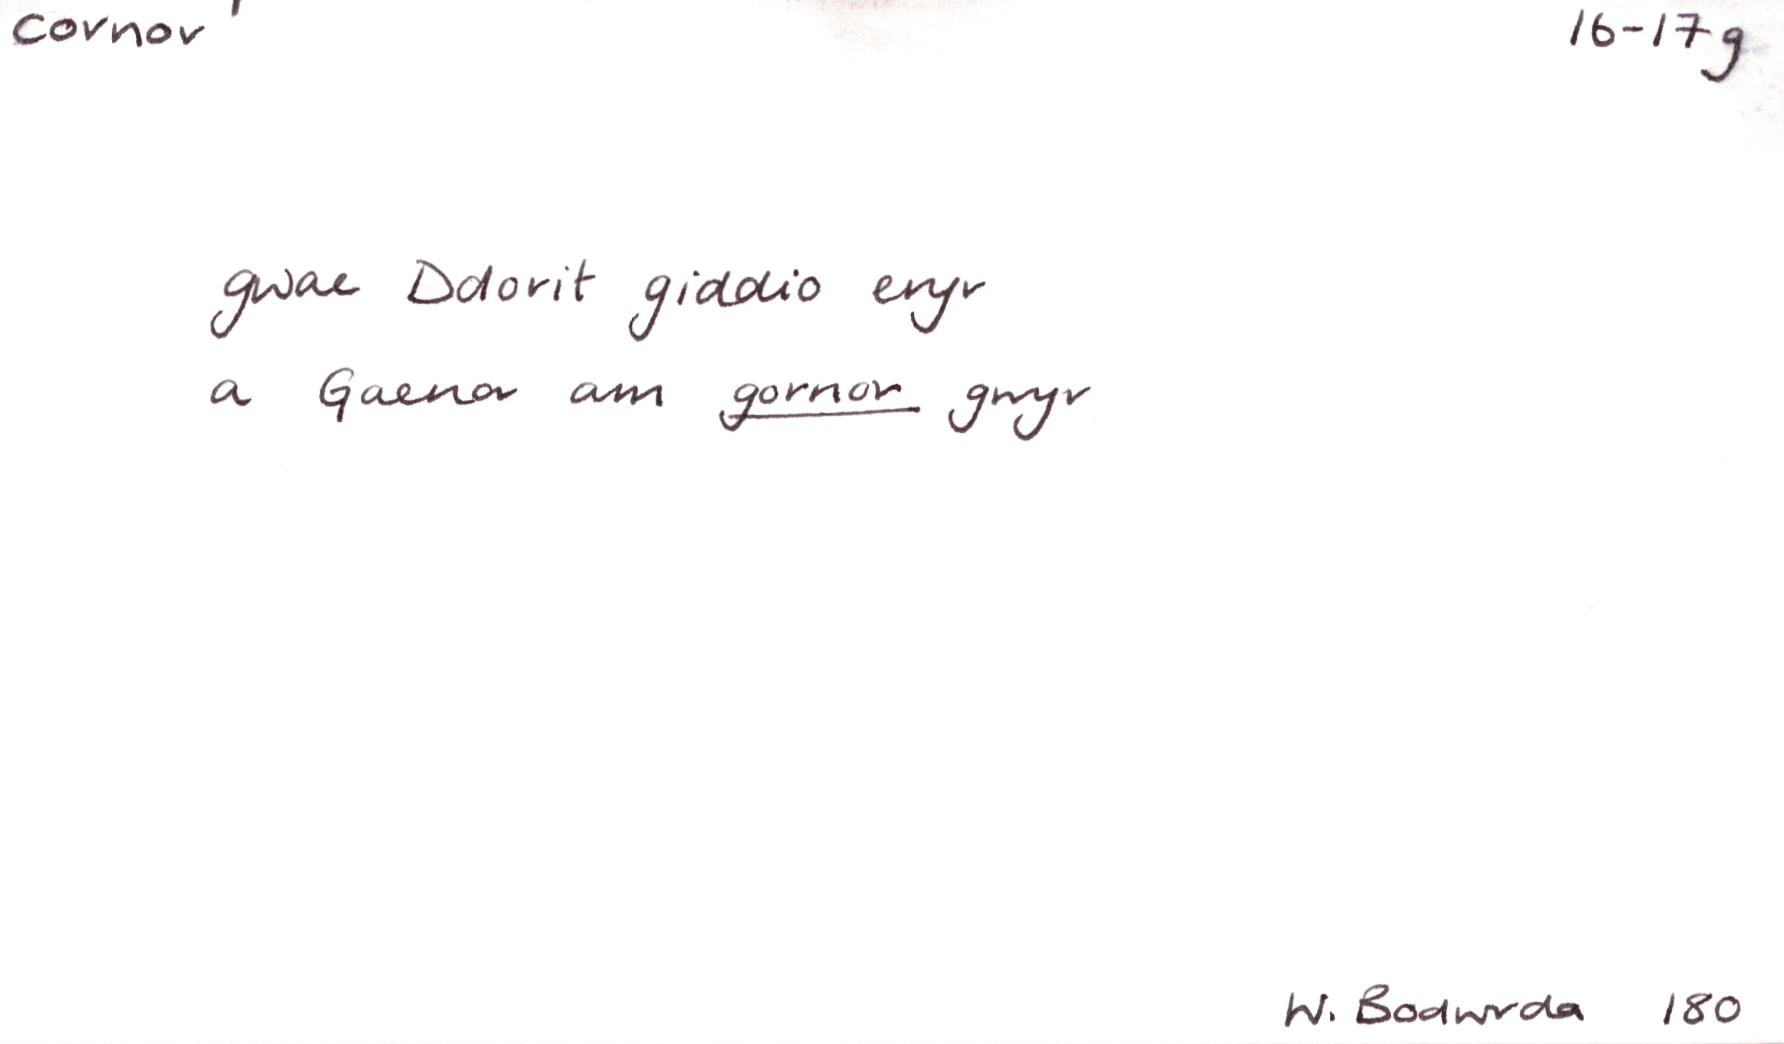 cornor 16-17g
gwae Ddorit giddio eryr
a Gaenor am gornor gwyr
W. Bodwrda 180